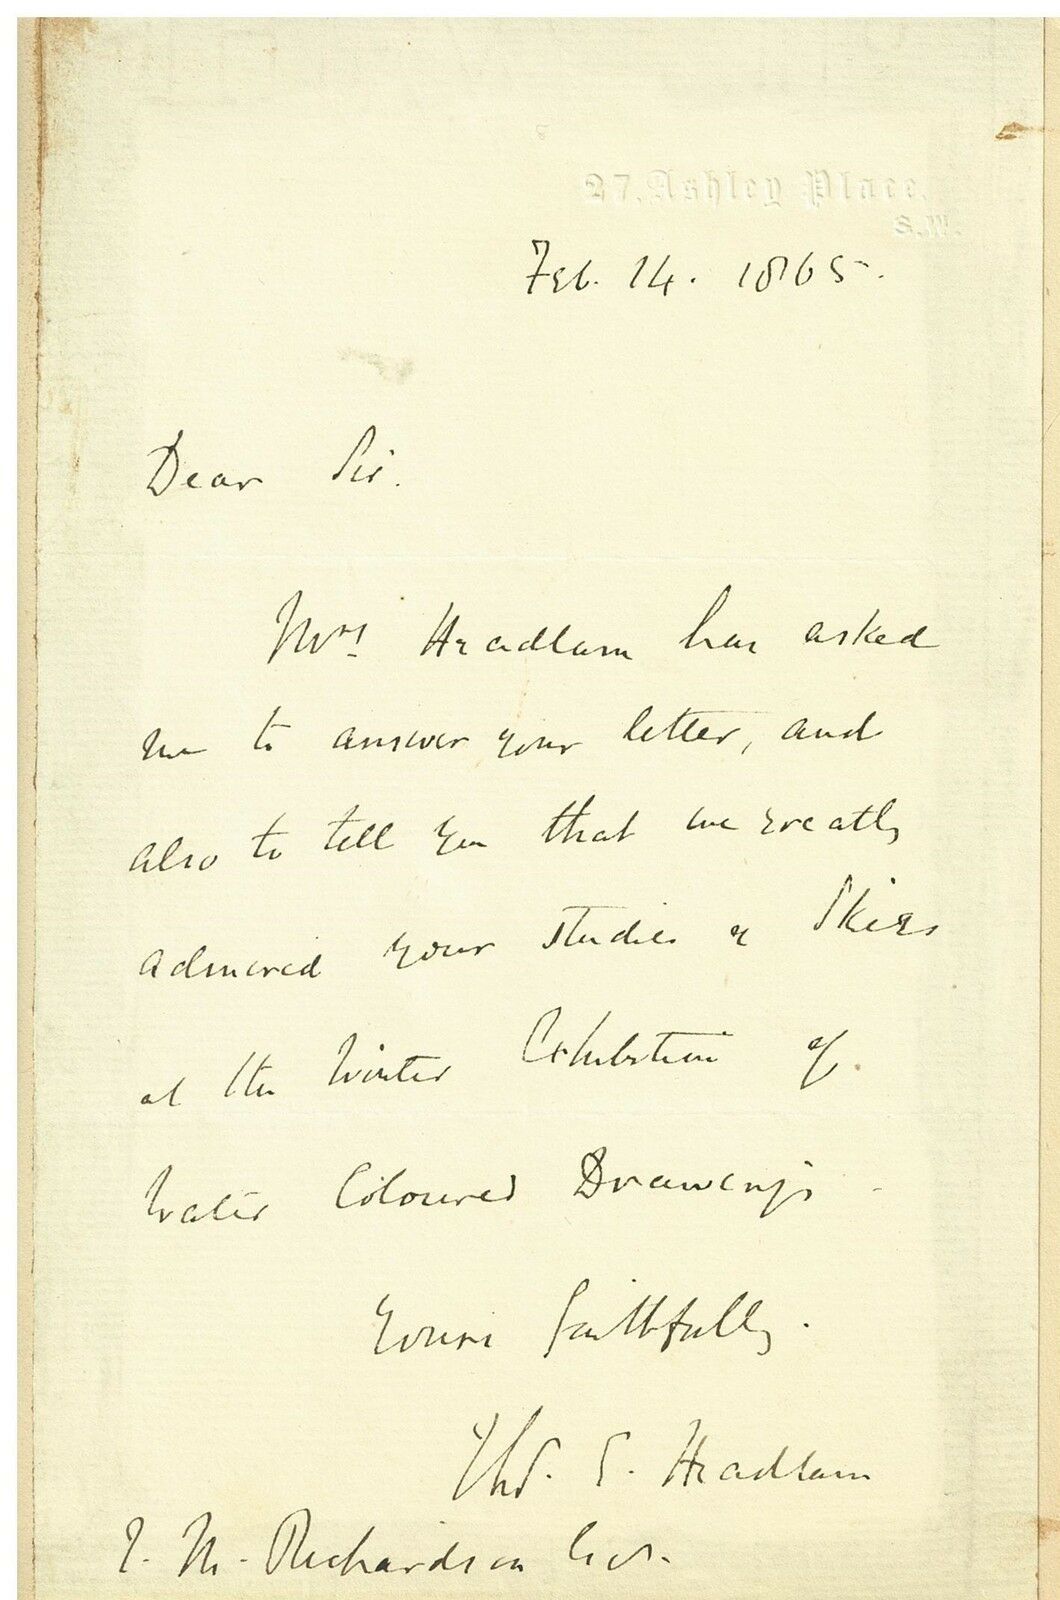 27, Ashley Place,
S.W.
Feb. 14. 1865.
Dear Sir.
Mrs Headlam has asked
me to answer your letter, and
also to tell you that we greatly
admired your studies of Skies
at the Winter Exhibition of
Water Coloured Drawings.
Yours faithfully.
Thos. E. Headlam
T. M. Richardson Esq.